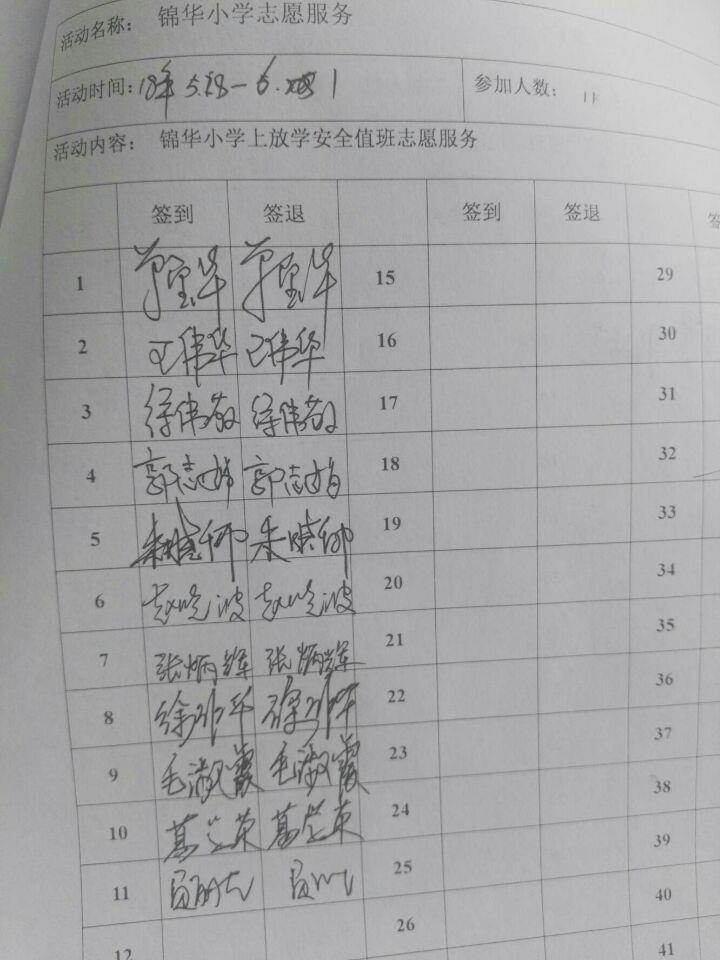 活动名称： 锦华小学志愿服务
活动时间：18年5.28－6. 1 参加人数： 11
活动内容： 锦华小学上放学安全值班志愿服务
签到 签退 签到 签退 签
1 15 29
2 王伟华 王伟华 16 30
3 徐伟敬 徐伟敬 17 31
4 郭志娟 郭志娟 18 32
5 朱晓娜 朱晓娜 19 33
6 赵晓波 赵晓波 20 34
7 张炳辉 张炳辉 21 35
8 22 36
9 毛淑霞 毛淑霞 23 37
10 24 38
11 25 39
12 26 40
41